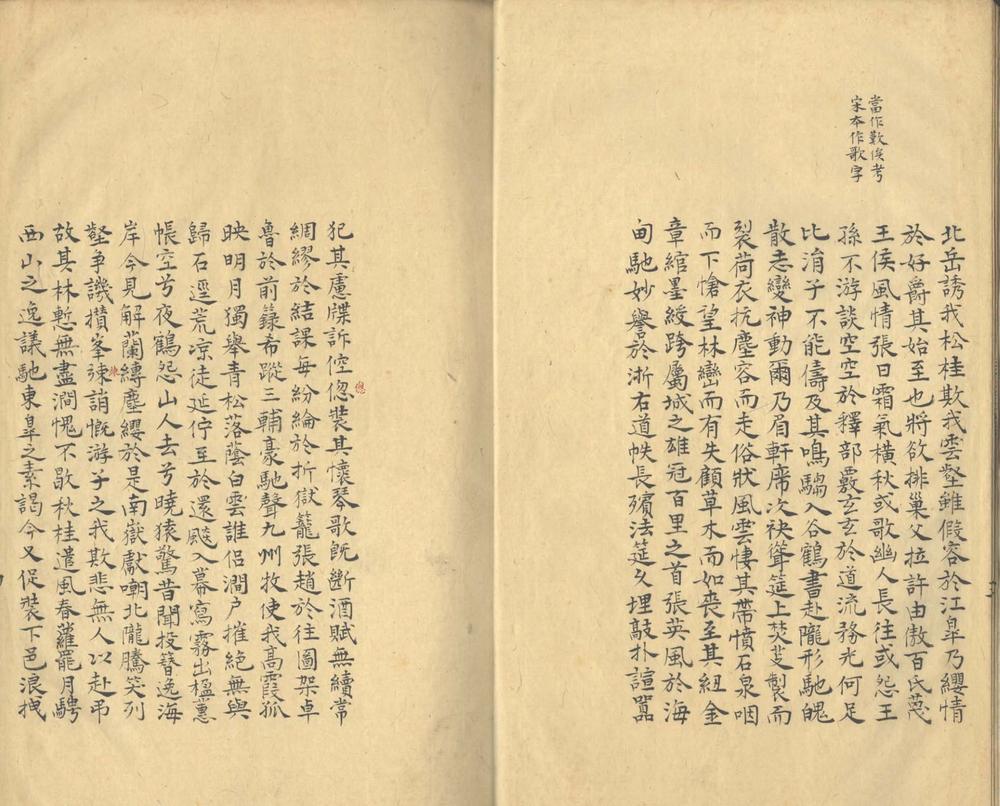 當作歎俟考
宋本作歌字
北岳誘我松桂欺我雲壑雖假容於江臯乃纓情
於好爵其始至也將欲排巢父拉許由傲百氏蔑
王侯風情張日霜氣橫秋或歌幽人長往或怨王
孫不游談空空於釋部覈玄玄於道流務光何足
比涓子不能儔及其鳴騶入谷鶴書赴隴形馳魄
散志變神動爾乃眉軒席次袂聳筵上焚芰製而
裂荷衣抗塵容而走俗狀風雲悽其帶憤石泉咽
而下愴望林巒而有失顧草木而如喪至其紐金
章綰墨綬跨屬城之雄冠百里之首張英風於海
甸馳妙譽於浙右道帙長殯法筵久埋敲扑諠囂
犯其慮牒訴倥偬裝其懷琴歌旣斷酒賦無續常
偬
綢繆於結課每紛綸於折獄籠張趙於往圖架卓
魯於前籙希蹤三輔豪馳聲九州牧使我高霞孤
映明月獨舉青松落蔭白雲誰侶澗户摧絕無與
歸石逕荒凉徒延佇至於還飈入幕寫霧出楹蕙
帳空兮夜鶴怨山人去兮曉猿驚昔聞投簪逸海
岸今見解蘭縛塵纓於是南嶽獻嘲北隴騰笑列
壑爭譏攅峯竦誚慨游子之我欺悲無人以赴弔
故其林慙無盡澗愧不歇秋桂遣風春蘿罷月騁
西山之逸議馳東臯之素謁今又促裝下邑浪拽